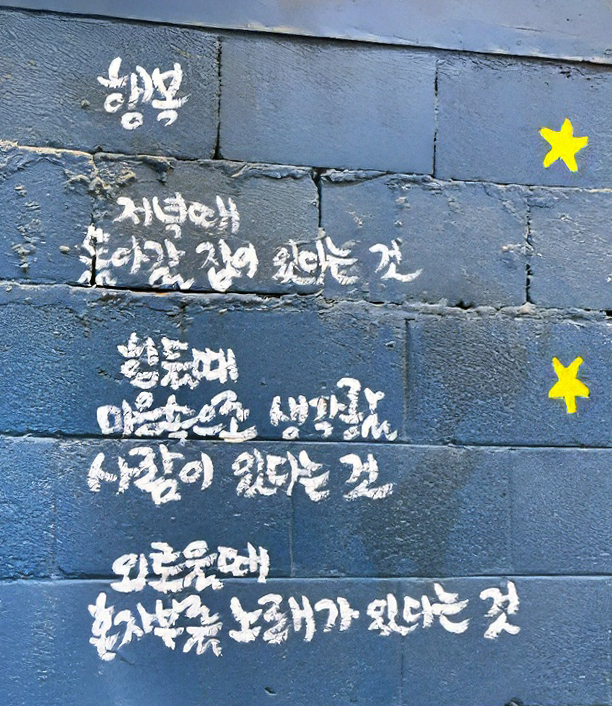 행복
저녁때
돌아갈 집이 있다는 것
힘들때
마음속으로 생각할
사람이 있다는 것
외로울때
혼자부를 노래가 있다는 것